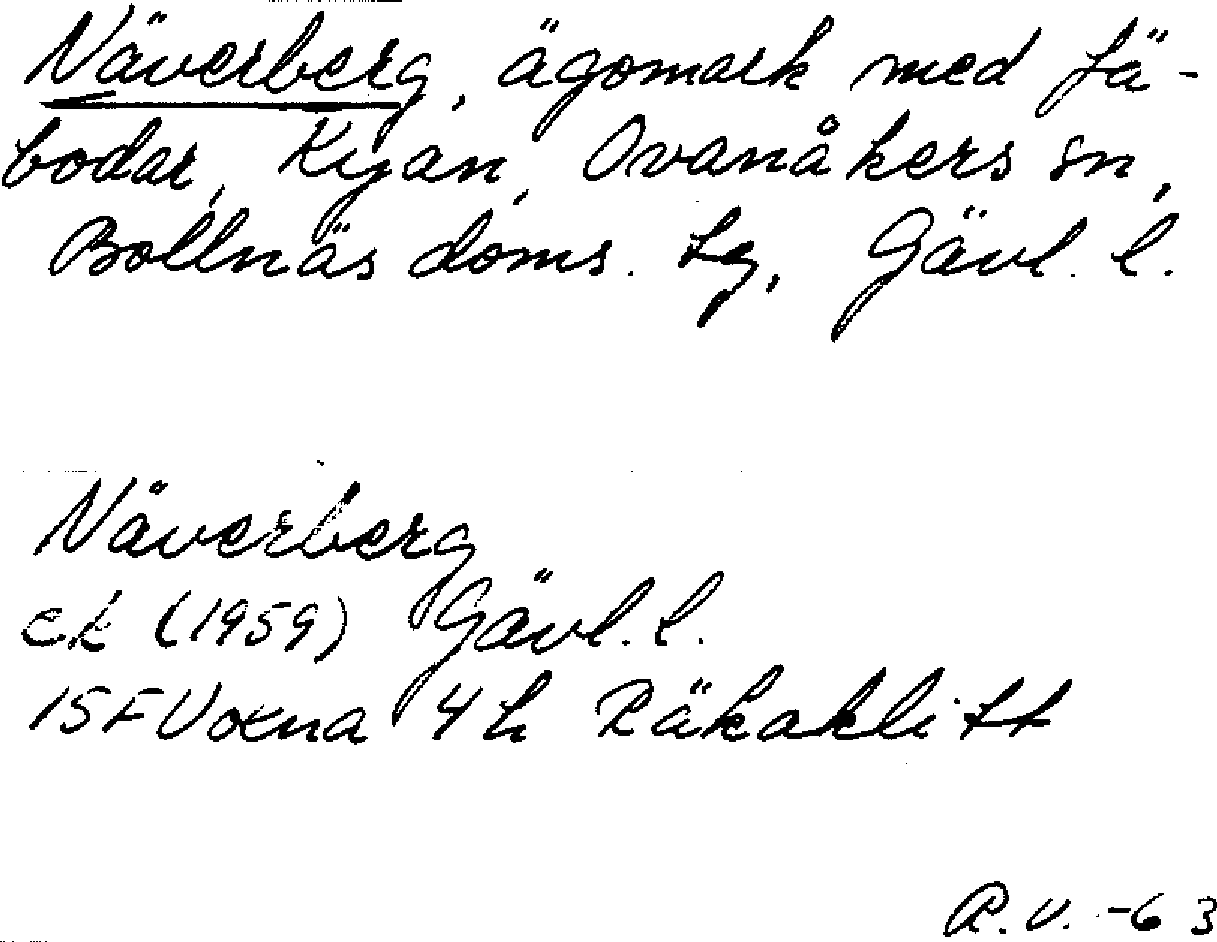 Näverberg, ägomark med fä-
bodar, Kyan, Ovanåkers sn,
Bollnäs doms. tg, Gävl. l.
Näverberg
ek (1959) Gävl. l.
15F Voxna 4 h Räkaklitt
R.V. -63